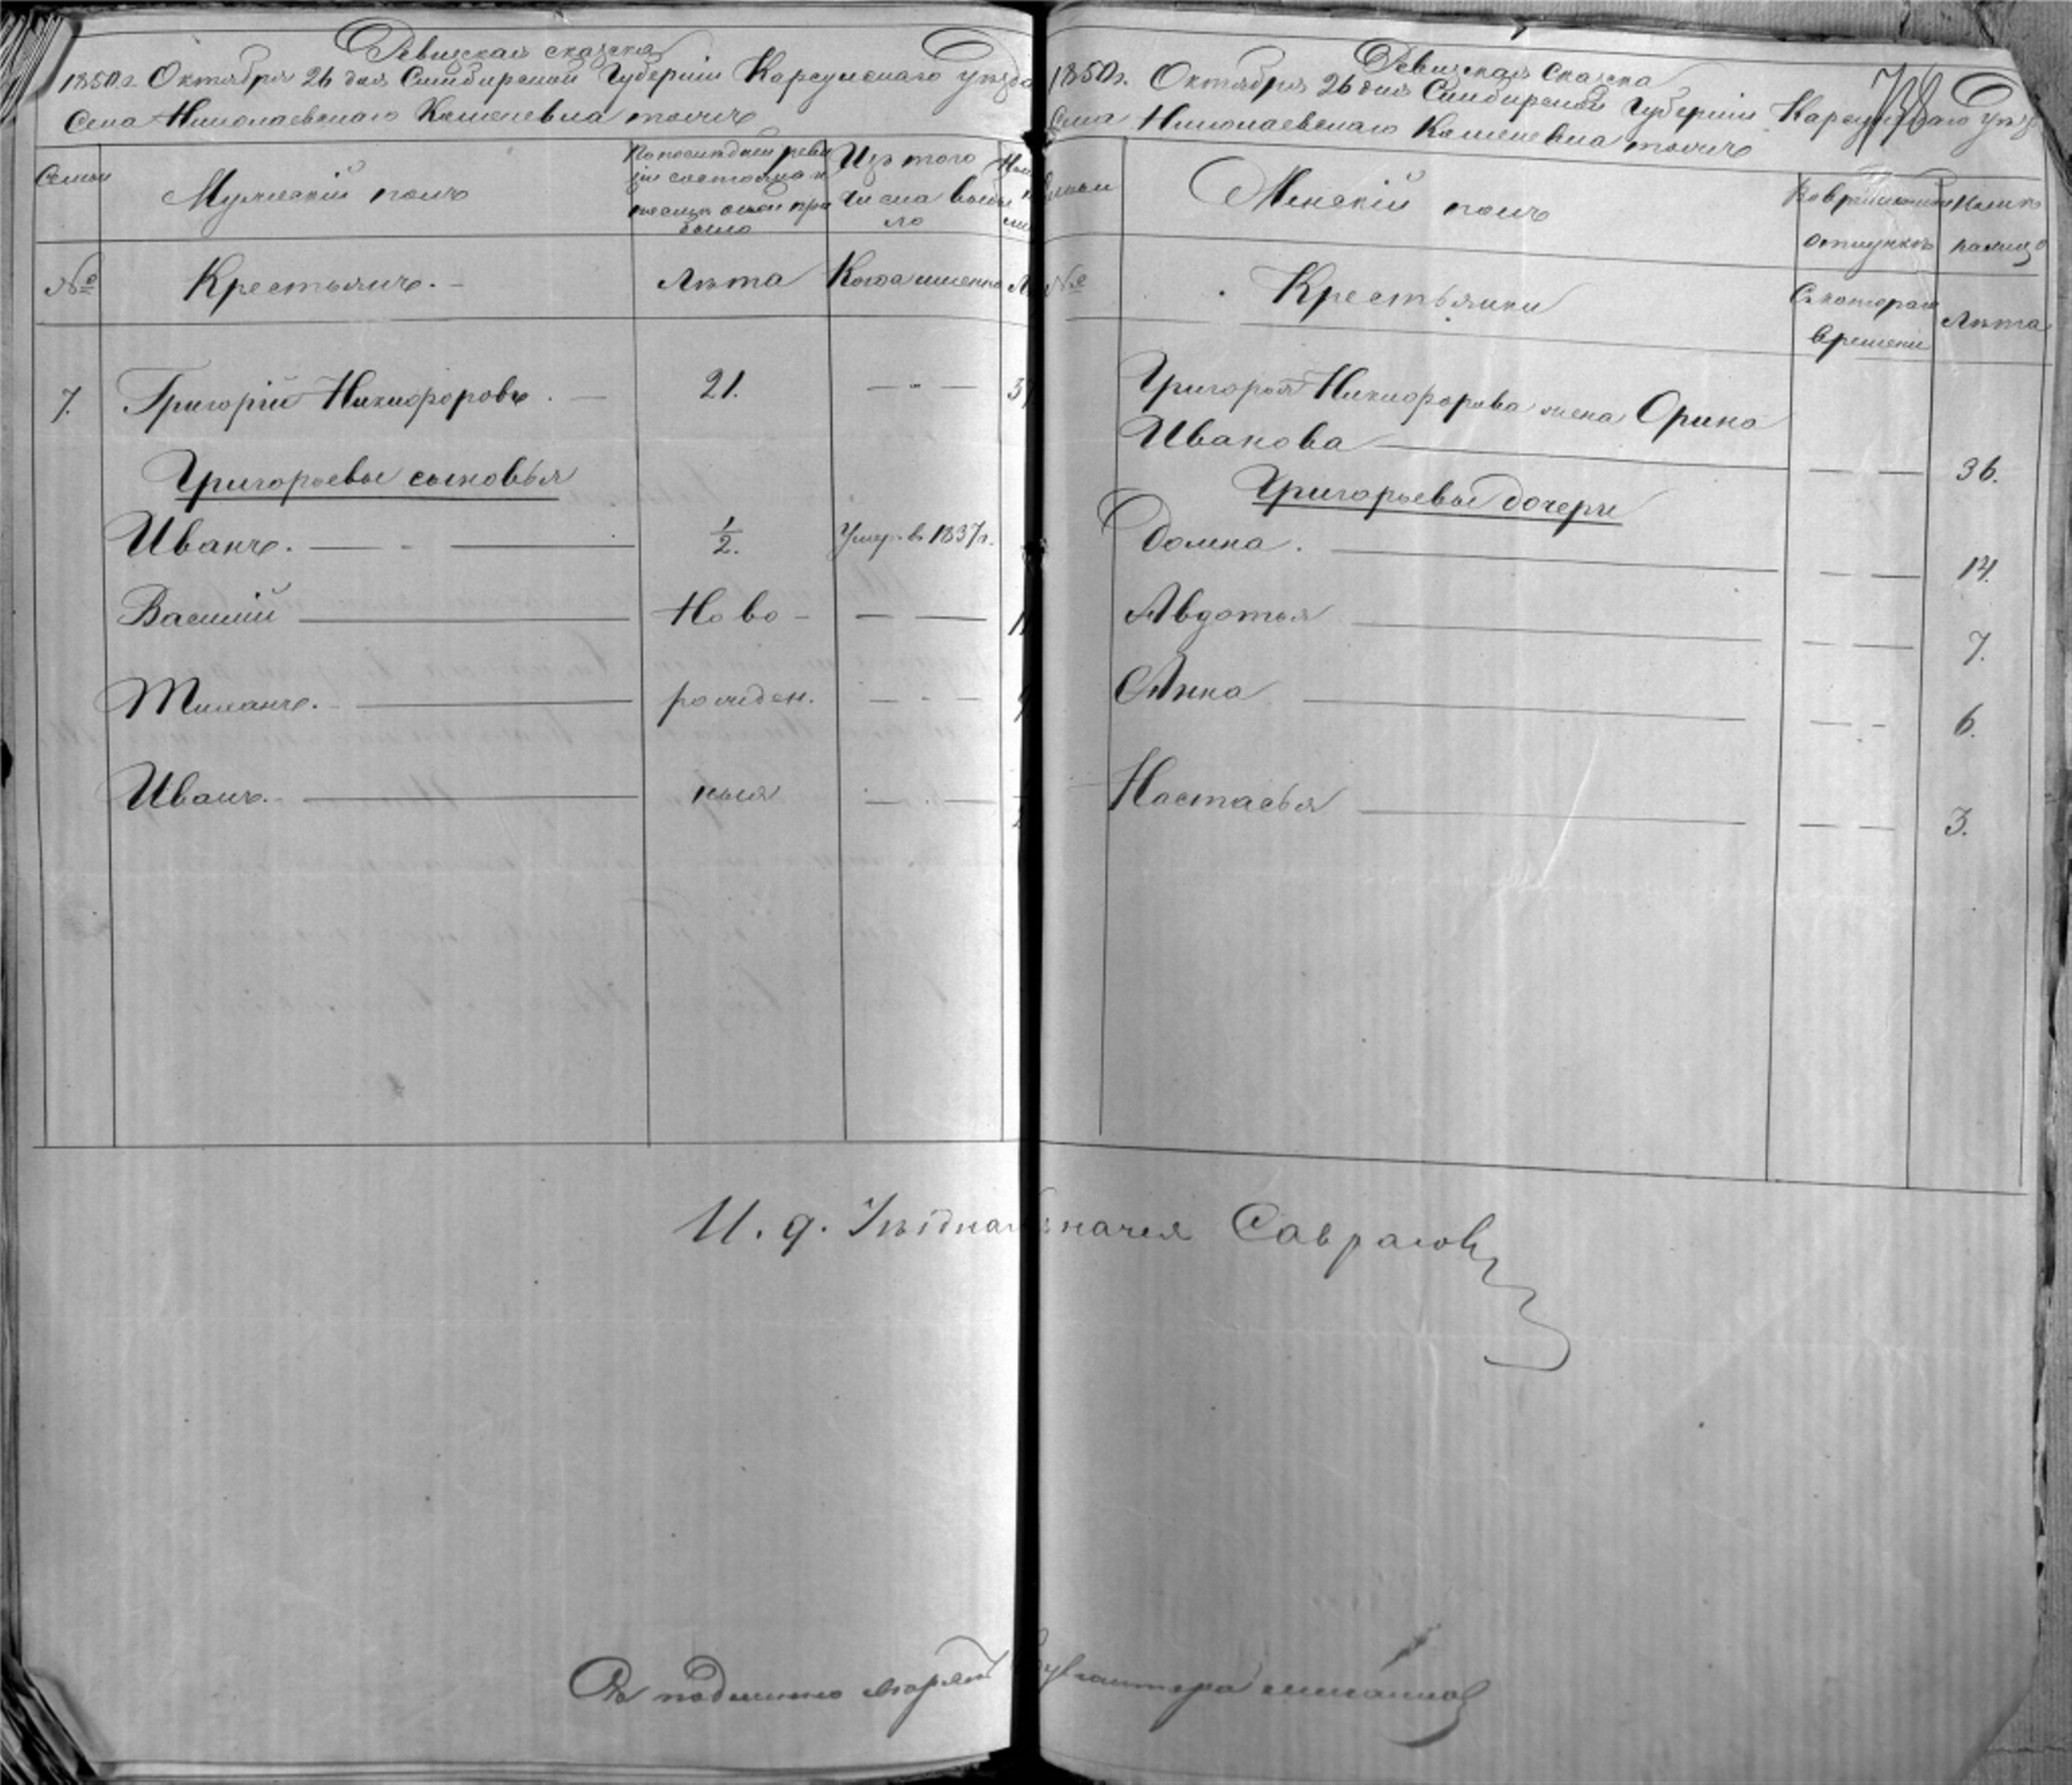 Ревизская сказка
1850 г. Октября 26 дня Симбирской Губернiи Карсунскаго уезда
Села Николаевскаго тожъ
Семьи
Мужескiй полъ
По последней реви
зiи состояло и
после оной при
было
Изъ того
числа выбы
ло
№
Крестьянъ.
Лѣта
Когда именно
7. Григорiй Никифоровъ. 21.
Григорьевы сыновья
Иванъ. 1/2. Умер. в 1837 г.
Василiй Ново-
Тимофей
рожден.
Иванъ. ныя
Ревизская сказка
1850 г. Октября 26 дня Симбирской Губернiи Карсунскаго
Села Николаевскаго тожъ
738
Женскiй полъ
Во временной
отлучкѣ
Ныне
налицо
№
Крестьянки
Съ котораго
времени
Лѣта
Григорья Никифорова жена Орина
Иванова 36.
Григорьевы дочери
Домна. 14.
Авдотья 7.
Анна 6.
Настасья 3.
И. д. Уѣзднаго
начея Саврасовъ
Съ подлинною
Бухгалтера